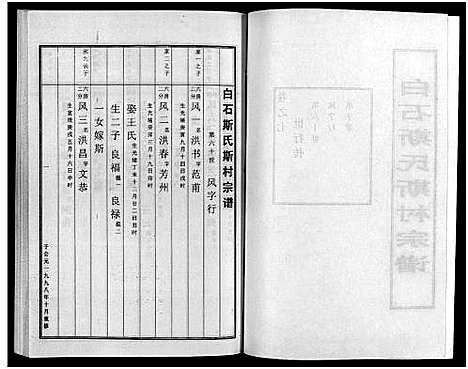 白石斯氏斯村宗谱
第六十校 风字行
第一之子
六房二分 风一 名洪书 字范甫
生光绪 九月十四日戌时
第二之子
六房二分 风二 名洪春 字芳州
生光绪 三月十九日 时
娶王氏 生光绪丁未十二月廿二日丑时
生二子 良福 继一 良禄 继二
一女嫁斯
六房二分 风三 名洪昌 字文恭
生宣统庚戌五月十六日子时
于公元一九九八年十月重修
白石斯氏斯村宗谱
卷之七
风字行
世行传